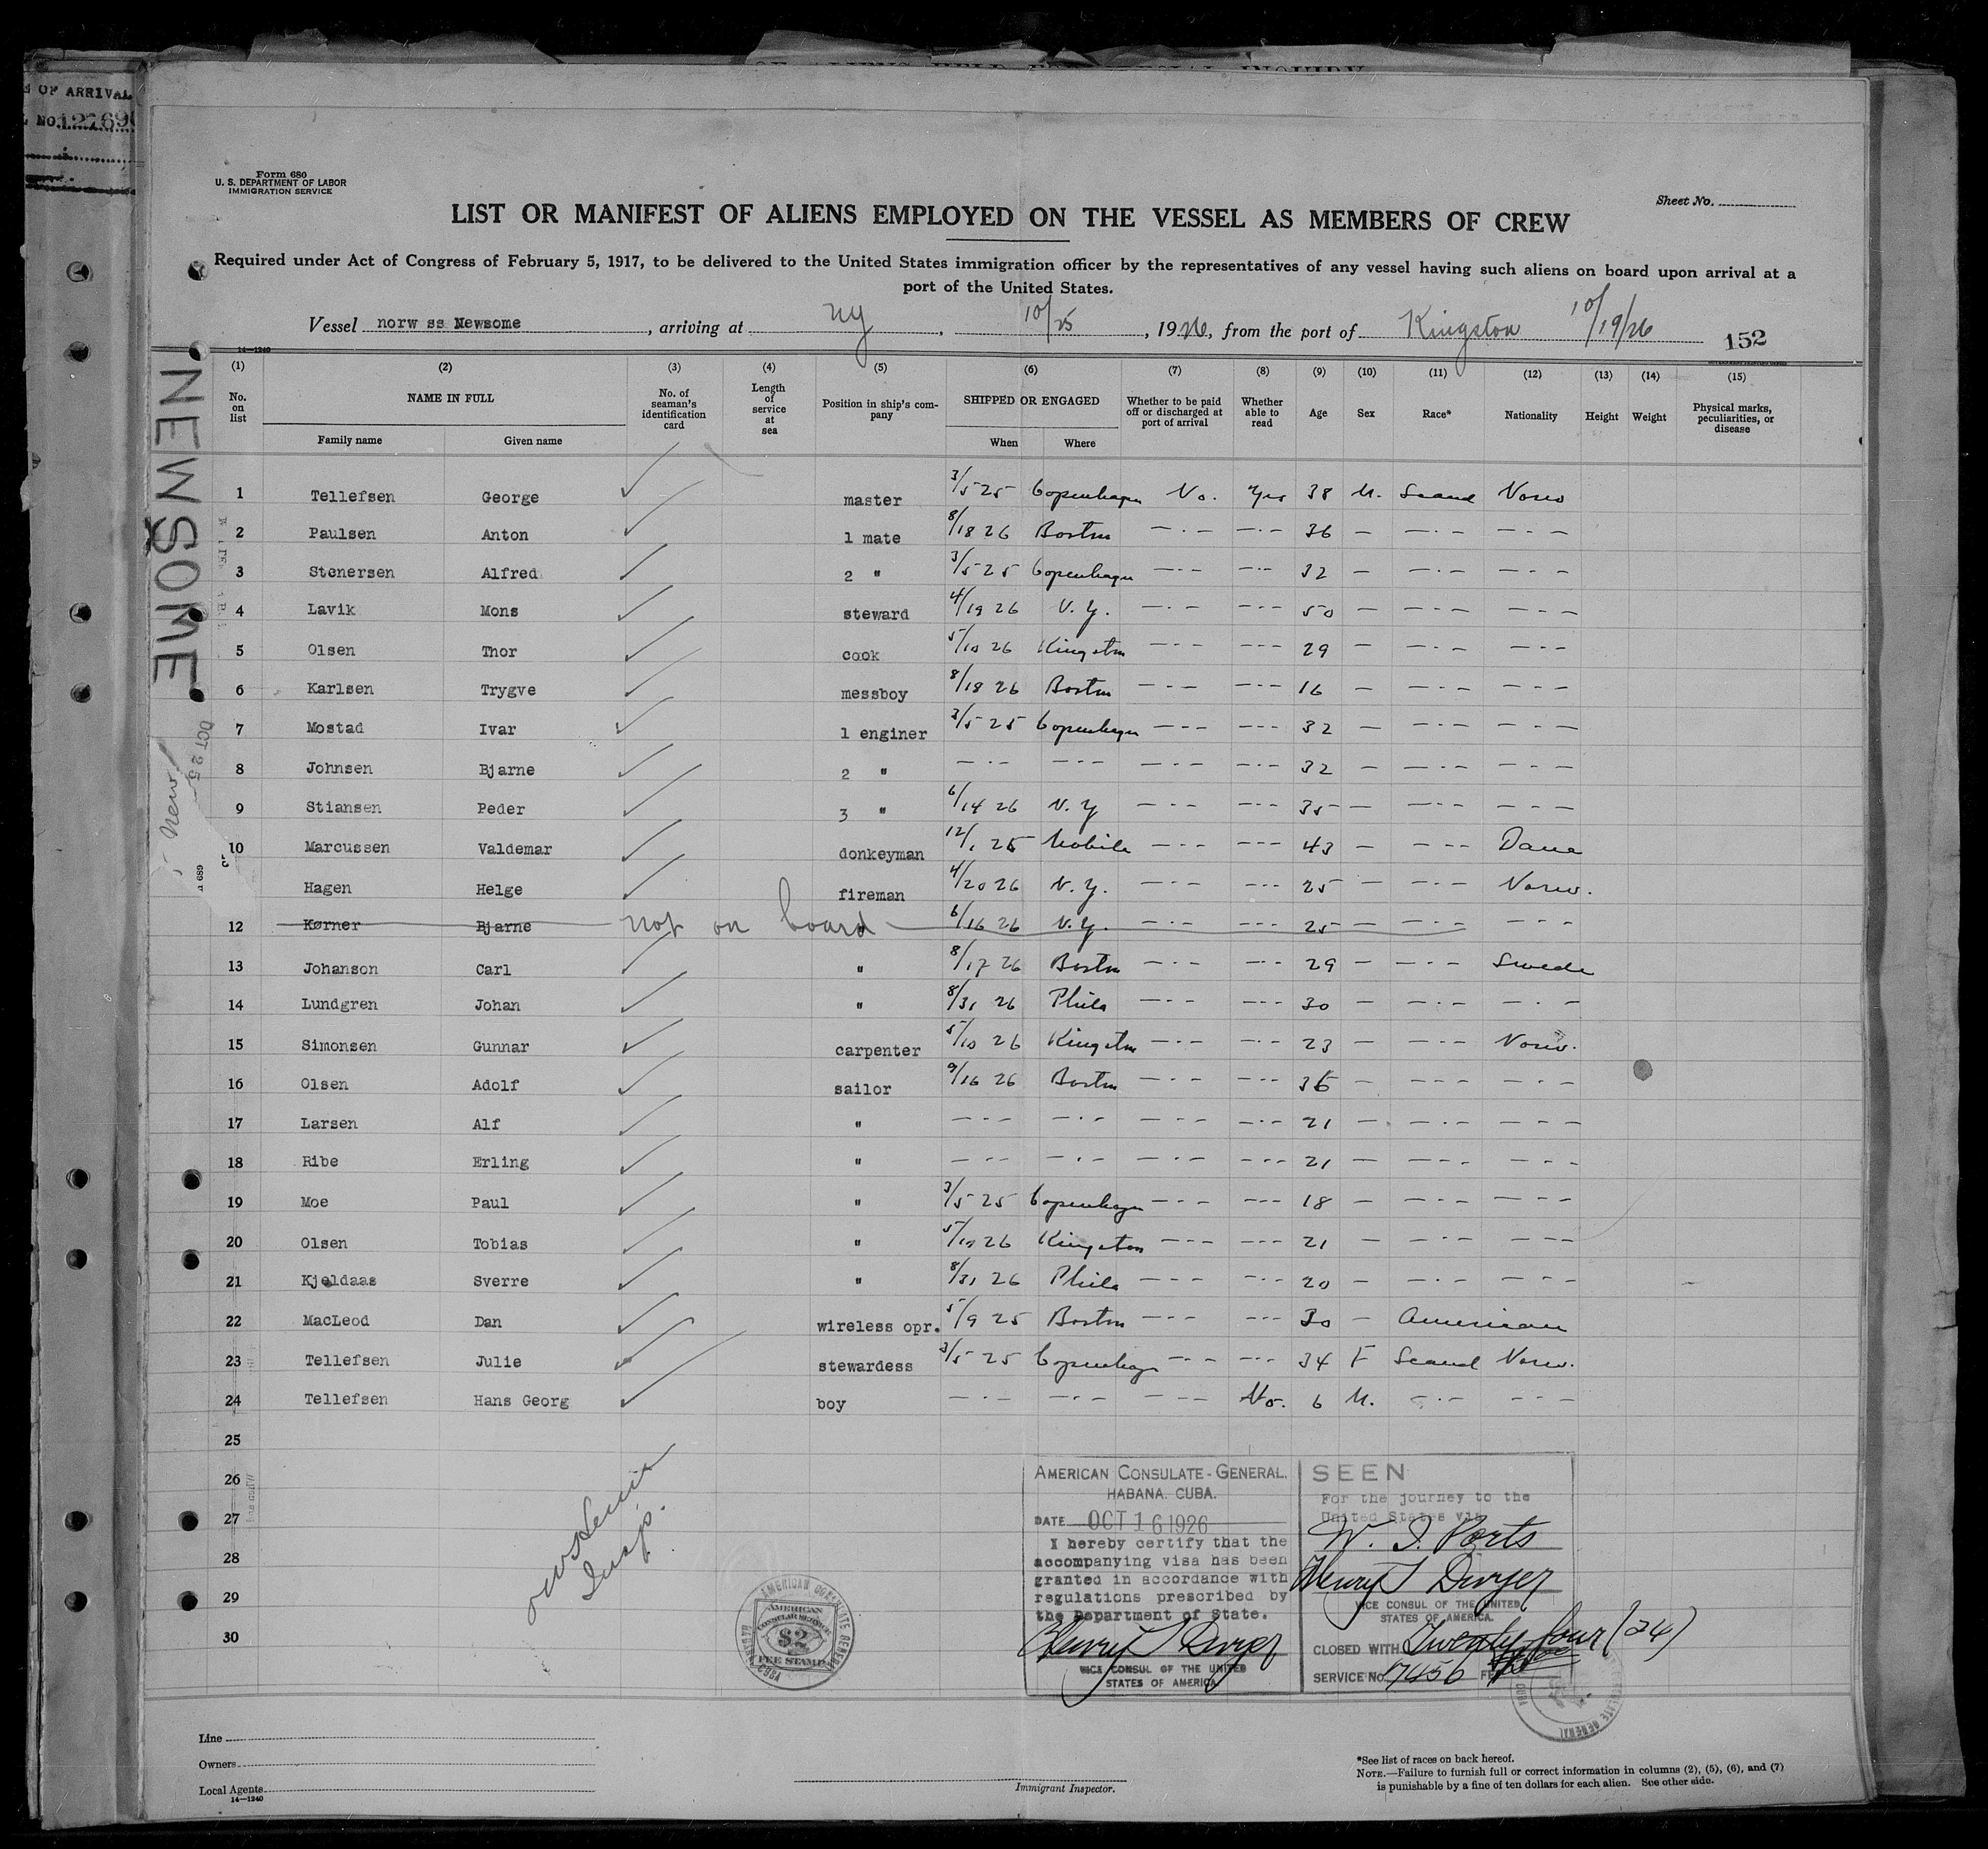 OF ARRIVAL
No. 12769
Form 680
U. S. DEPARTMENT OF LABOR
IMMIGRATION SERVICE
Sheet No.
LIST OR MANIFEST OF ALIENS EMPLOYED ON THE VESSEL AS MEMBERS OF CREW
Required under Act of Congress of February 5, 1917, to be delivered to the United States immigration officer by the representatives of any vessel having such aliens on board upon arrival at a
port of the United States.
Vessel norw ss Newsome, arriving at NY, 10/25, 1926, from the port of Kingston 10/19/26
152
14—1240
(1) (2) (3) (4) (5) (6) (7) (8) (9) (10) (11) (12) (13) (14) (15)
No. on list NAME IN FULL Family name Given name No. of seaman's identification card Length of service at sea Position in ship's company SHIPPED OR ENGAGED When Where Whether to be paid off or discharged at port of arrival Whether able to read Age Sex Race* Nationality Height Weight Physical marks, peculiarities, or disease
NEWSOME
OCT 25
New
1 Tellefsen George master 3/5 25 Copenhagen No. Yes 38 M. Scand Norw
2 Paulsen Anton 1 mate 8/18 26 Boston —·— —·— 36 — —·— —·—
3 Stenersen Alfred 2 " 3/5 25 Copenhagen —·— —·— 32 — —·— —·—
4 Lavik Mons steward 4/19 26 N.Y. —·— —·— 50 — —·— —·—
5 Olsen Thor cook 5/10 26 Kingston —·— —·— 29 — —·— —·—
6 Karlsen Trygve messboy 8/18 26 Boston —·— —·— 16 — —·— —·—
7 Mostad Ivar 1 enginer 3/5 25 Copenhagen —·— —·— 32 — —·— —·—
8 Johnsen Bjarne 2 " —·— —·— —·— —·— 32 — —·— —·—
9 Stiansen Peder 3 " 6/14 26 N.Y —·— —·— 35 — —·— —·—
10 Marcussen Valdemar donkeyman 12/1 25 Mobile —·— —·— 43 — —·— Dane
Hagen Helge fireman 4/20 26 N.Y. —·— —·— 25 — —·— Norw.
12 Kørner Bjarne not on board " 6/16 26 N.Y. —·— —·— 25 — —·— —·—
13 Johanson Carl " 8/17 26 Boston —·— —·— 29 — —·— Swede
14 Lundgren Johan " 8/31 26 Phila —·— —·— 30 — —·— —·—
15 Simonsen Gunnar carpenter 5/10 26 Kingston —·— —·— 23 — —·— Norw.
16 Olsen Adolf sailor 9/16 26 Boston —·— —·— 36 — —·— —·—
17 Larsen Alf " —·— —·— —·— —·— 21 — —·— —·—
18 Ribe Erling " —·— —·— —·— —·— 21 — —·— —·—
19 Moe Paul " 3/5 25 Copenhagen —·— —·— 18 — —·— —·—
20 Olsen Tobias " 5/10 26 Kingston —·— —·— 21 — —·— —·—
21 Kjeldaas Sverre " 8/31 26 Phila —·— —·— 20 — —·— —·—
22 MacLeod Dan wireless opr. 5/9 25 Boston —·— —·— 30 — American
23 Tellefsen Julie stewardess 3/5 25 Copenhagen —·— —·— 34 F Scand Norw.
24 Tellefsen Hans Georg boy —·— —·— —·— No. 6 M. —·— —·—
25
26
27
28
29
30
Insp.
AMERICAN CONSULATE GENERAL
AMERICAN
CONSULAR SERVICE
$2
FEE STAMP
HABANA CUBA
AMERICAN CONSULATE-GENERAL,
HABANA. CUBA.
DATE OCT 16 1926
I hereby certify that the
accompanying visa has been
granted in accordance with
regulations prescribed by
the Department of State.
Henry T Dwyer
VICE CONSUL OF THE UNITED
STATES OF AMERICA
SEEN
For the journey to the
United States via
N. S. Ports
Henry T Dwyer
VICE CONSUL OF THE UNITED
STATES OF AMERICA.
CLOSED WITH Twenty four (24)
SERVICE No. 7456
Line
Owners
Local Agents
14—1240
Immigrant Inspector.
*See list of races on back hereof.
NOTE.—Failure to furnish full or correct information in columns (2), (5), (6), and (7)
is punishable by a fine of ten dollars for each alien. See other side.